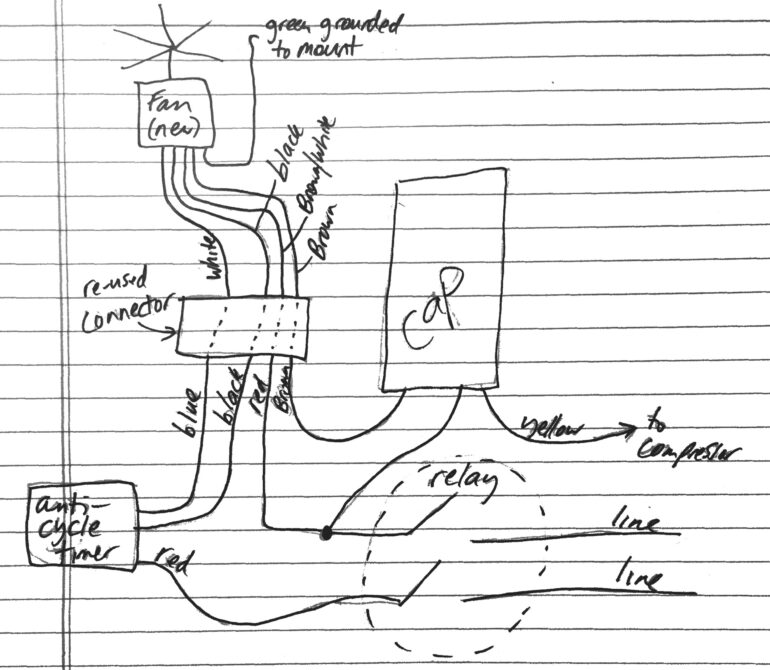 green grounded
to mount
Fan
(new)
black
Brown/white
Brown
white
re-used
connector
cap
blue
black
red
Brown
yellow
to
compressor
relay
anti-
cycle
timer
red
line
line